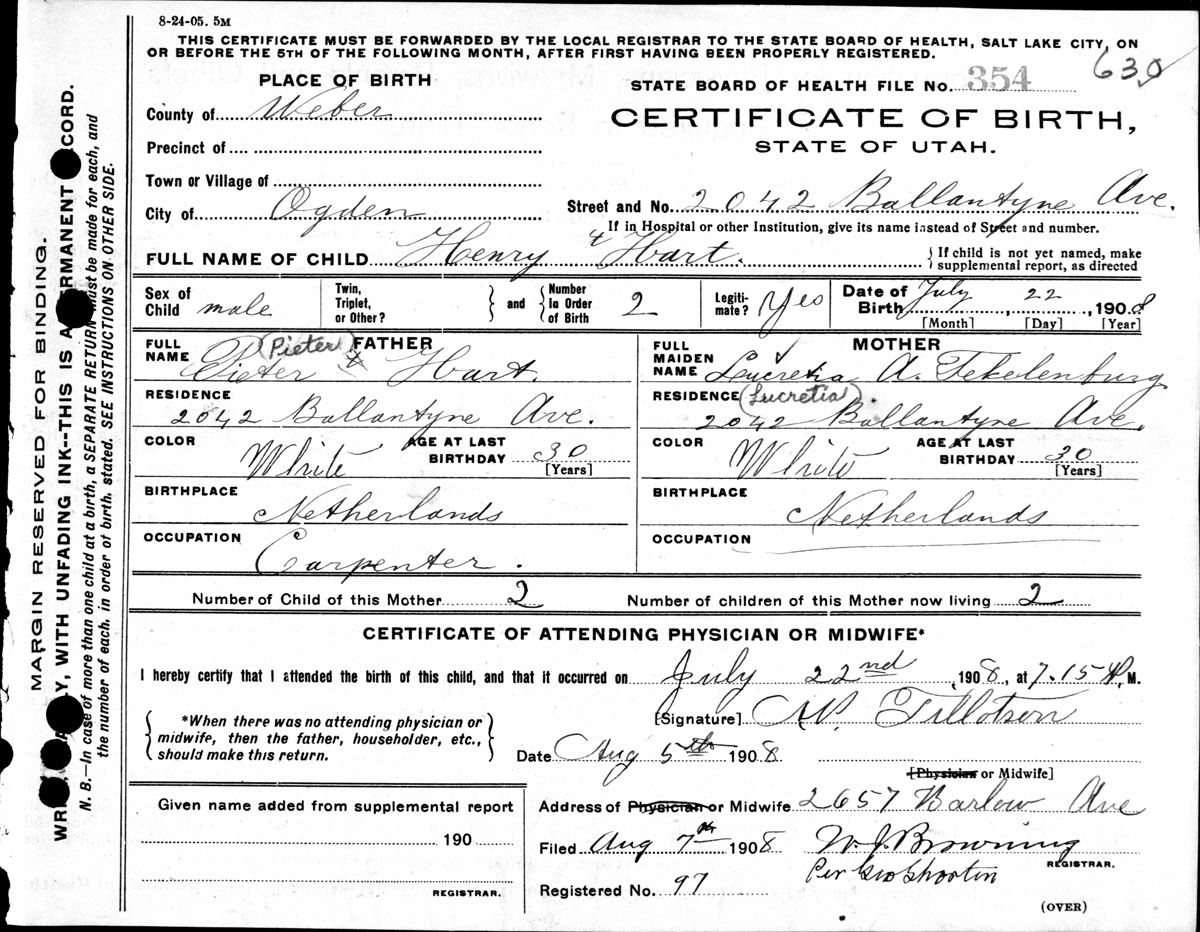 8-24-05. 5M
THIS CERTIFICATE MUST BE FORWARDED BY THE LOCAL REGISTRAR TO THE STATE BOARD OF HEALTH, SALT LAKE CITY, ON
OR BEFORE THE 5TH OF THE FOLLOWING MONTH, AFTER FIRST HAVING BEEN PROPERLY REGISTERED.
630
PLACE OF BIRTH
STATE BOARD OF HEALTH FILE No. 354
County of Weber
CERTIFICATE OF BIRTH,
Precinct of
STATE OF UTAH.
Town or Village of
City of Ogden
Street and No. 2042 Ballantyne Ave.
If in Hospital or other Institution, give its name instead of Street and number.
FULL NAME OF CHILD Henry Hart.
{If child is not yet named, make
supplemental report, as directed
Sex of
Child male
Twin,
Triplet,
or Other?
} and {
Number
in Order
of Birth 2
Legiti-
mate? Yes
Date of
Birth July 22, 1908
[Month] [Day] [Year]
FATHER
FULL
NAME Pieter Hart.
(Pieter)
RESIDENCE
2042 Ballantyne Ave.
COLOR White
AGE AT LAST
BIRTHDAY 30
[Years]
BIRTHPLACE
Netherlands
OCCUPATION
Carpenter.
MOTHER
FULL
MAIDEN
NAME Lucretia A. Tekelenburg
(Lucretia)
RESIDENCE
2042 Ballantyne Ave.
COLOR White
AGE AT LAST
BIRTHDAY 30
[Years]
BIRTHPLACE
Netherlands
OCCUPATION
Number of Child of this Mother 2 Number of children of this Mother now living 2
CERTIFICATE OF ATTENDING PHYSICIAN OR MIDWIFE*
I hereby certify that I attended the birth of this child, and that it occurred on July 22nd, 1908, at 7.15 P.M.
{*When there was no attending physician or
midwife, then the father, householder, etc.,
should make this return.}
[Signature] Tillotson
Date Aug 5th 1908
[Physician or Midwife]
Given name added from supplemental report
190
REGISTRAR.
Address of Physician or Midwife 2657 Barlow Ave
Filed Aug 7th 1908 W. J. Browning
REGISTRAR.
Per Geo Shorten
Registered No. 97
(OVER)
MARGIN RESERVED FOR BINDING.
WITH UNFADING INK--THIS IS A PERMANENT RECORD.
N. B.—In case of more than one child at a birth, a SEPARATE RETURN must be made for each, and
the number of each, in order of birth, stated. SEE INSTRUCTIONS ON OTHER SIDE.